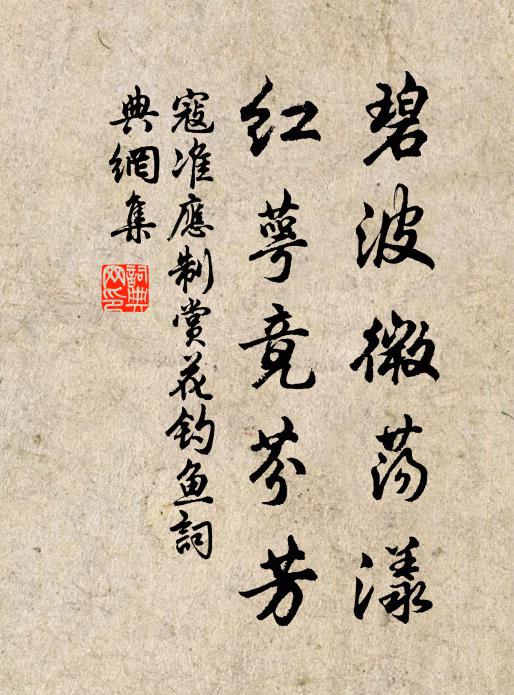 碧波微荡漾
红萼竟芬芳
寇准應制赏花钓鱼詞
典網集
詞典網印